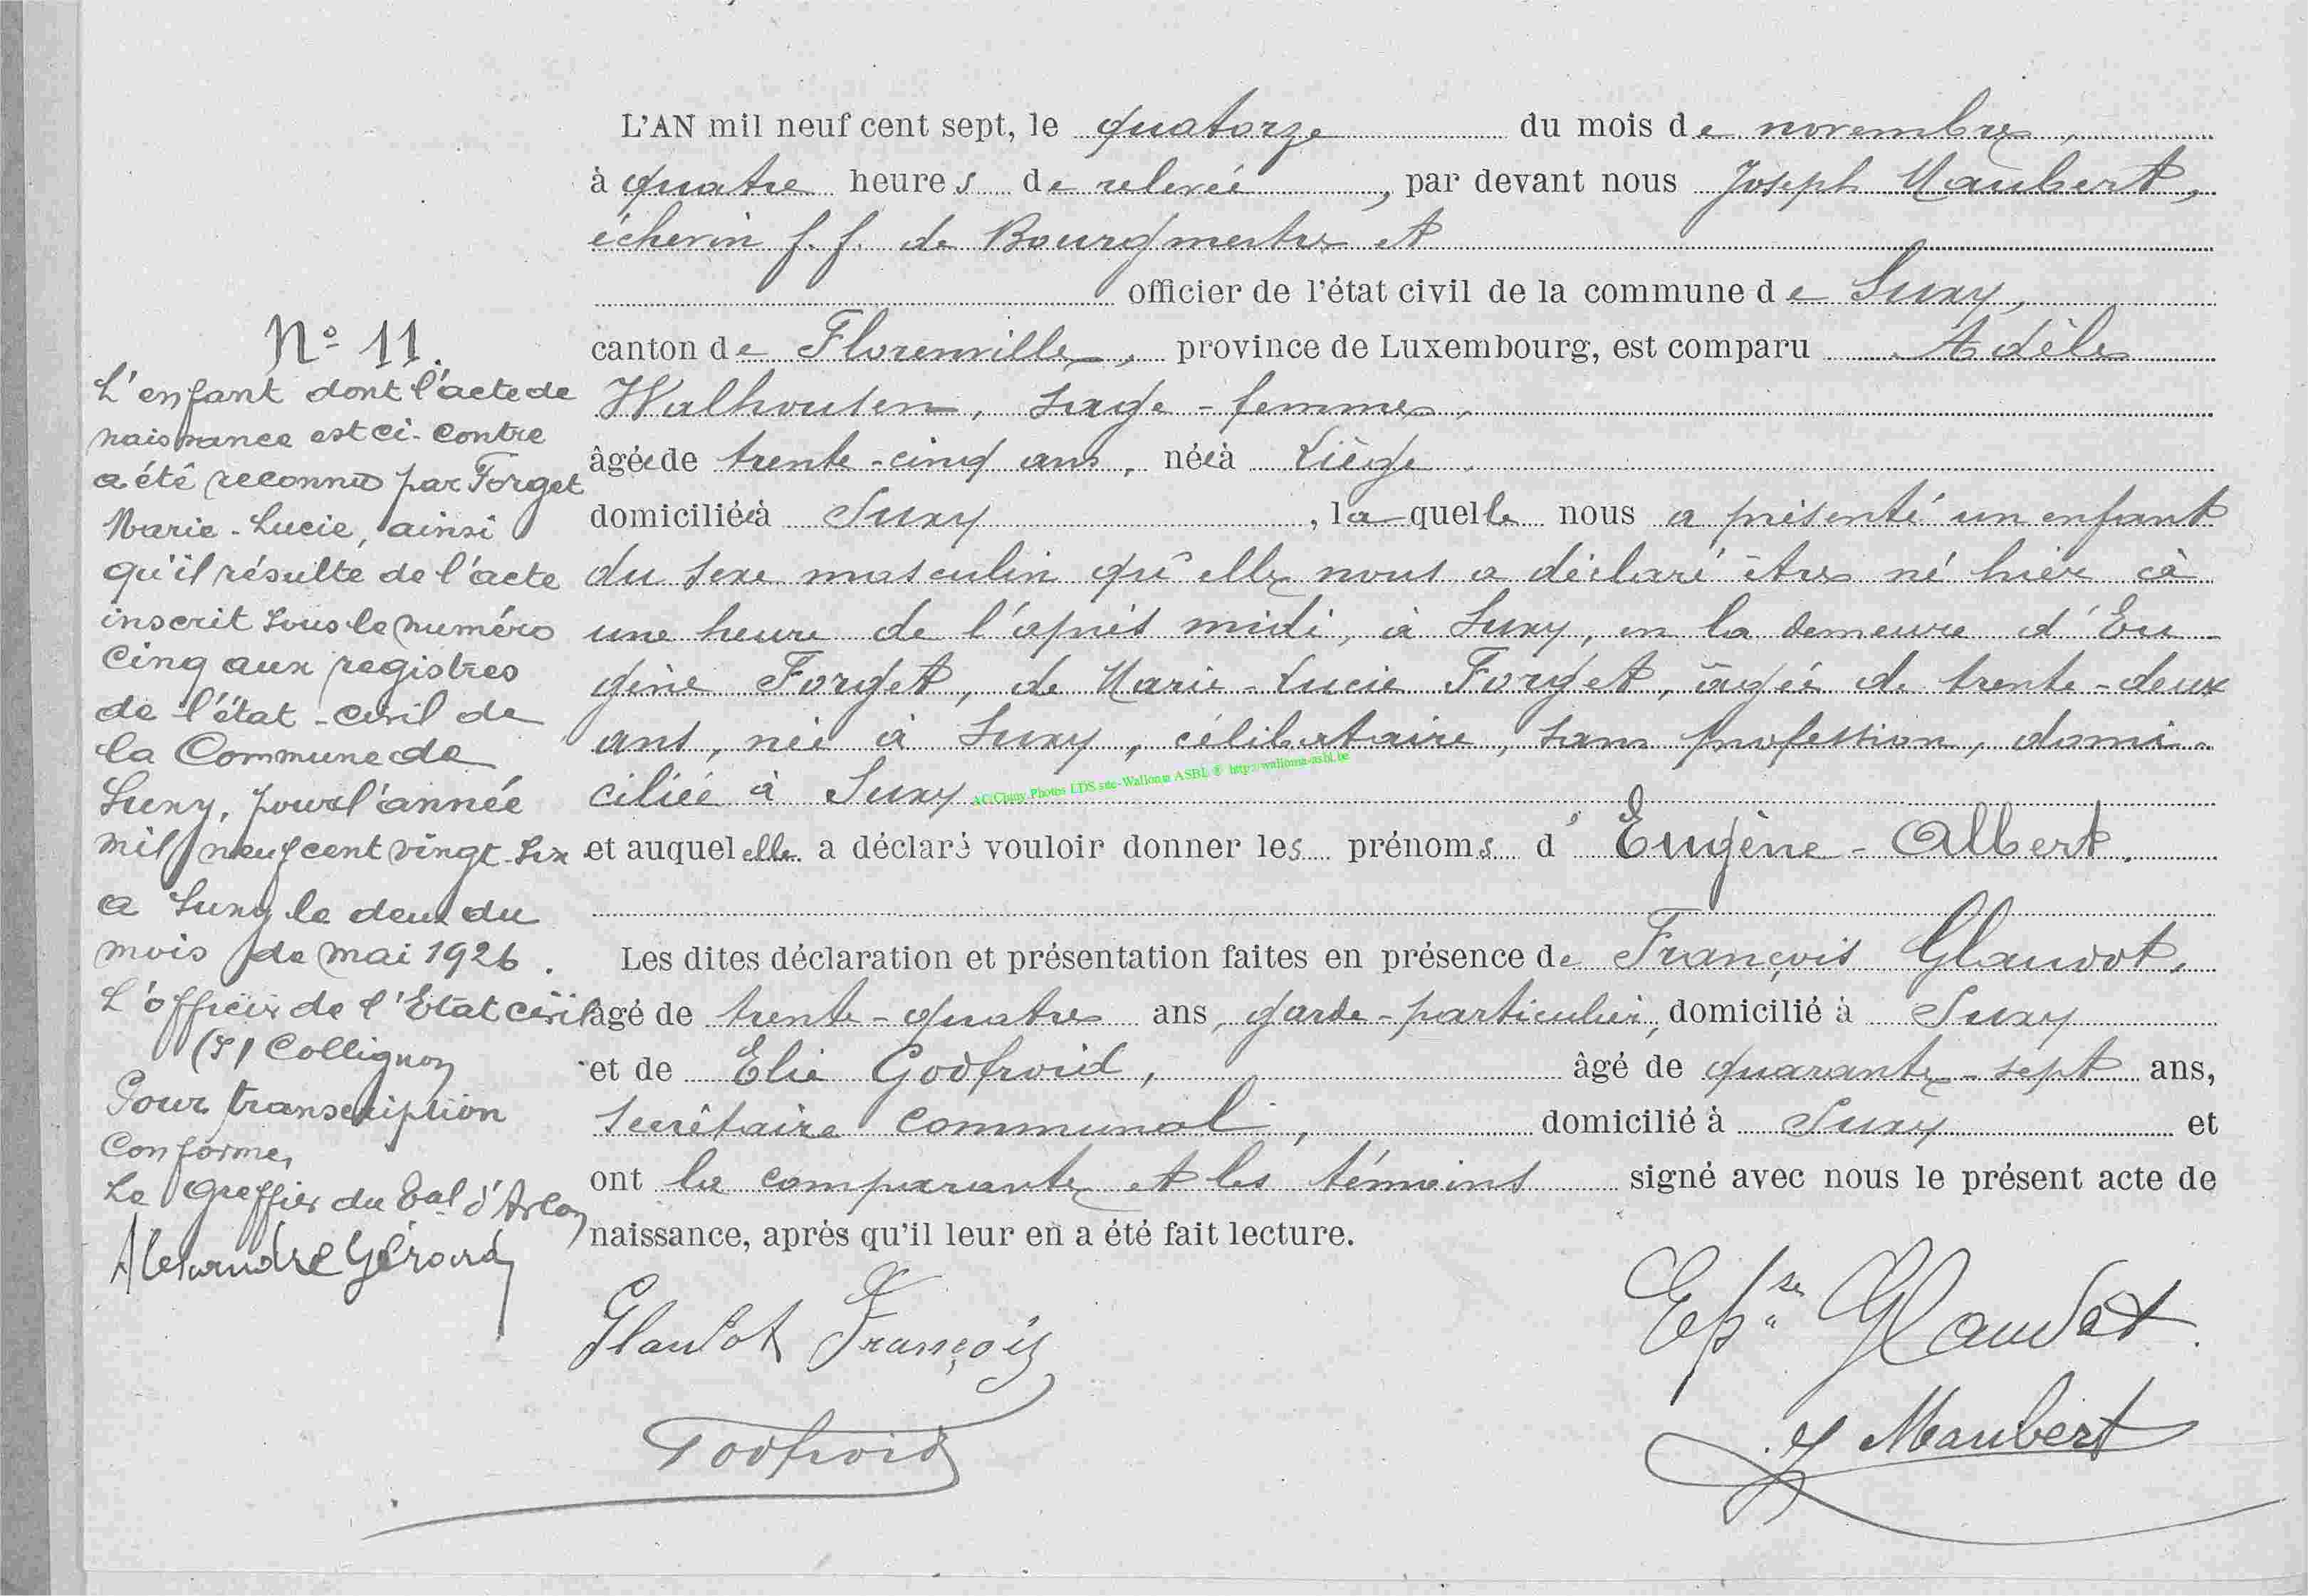 L'AN mil neuf cent sept, le quatorze du mois de novembre,
à quatre heures de relevée, par devant nous Joseph Maubert,
échevin f. f. de Bourgmestre et
officier de l'état civil de la commune de Suxy,
canton de Florenville, province de Luxembourg, est comparu Adèle
Walhousen, sage-femme,
âgée de trente-cinq ans, née à Liège,
domiciliée à Suxy, laquelle nous a présenté un enfant
du sexe masculin qu'elle nous a déclaré être né hier à
une heure de l'après midi, à Suxy, en la demeure d'Eu-
gène Forget, de Marie-Lucie Forget, âgée de trente-deux
ans, née à Suxy, célibataire, sans profession, domi-
ciliée à Suxy
AC/Cluny Photos LDS site-Wallonia ASBL ® http://wallonia-asbl.be
et auquel elle a déclaré vouloir donner les prénoms d'Eugène-Albert.
Les dites déclaration et présentation faites en présence de François Glaudot,
âgé de trente-quatre ans, garde-particulier, domicilié à Suxy
et de Elie Godfroid, âgé de quarante-sept ans,
secrétaire communal, domicilié à Suxy et
ont la comparante et les témoins signé avec nous le présent acte de
naissance, après qu'il leur en a été fait lecture.
Glaudot François
Eps.se Glaudot
Godfroid
J Maubert
N° 11.
L'enfant dont l'acte de
naissance est ci-contre
a été reconnu par Forget
Marie-Lucie, ainsi
qu'il résulte de l'acte
inscrit sous le numéro
cinq aux registres
de l'état-civil de
la Commune de
Suxy, pour l'année
mil neuf cent vingt-six
a Suxy le deux du
mois de mai 1926.
L'officier de l'Etat civil
(s) Collignon
Pour transcription
conforme,
Le Greffier du Bal d'Arlon
Alexandre Gérard